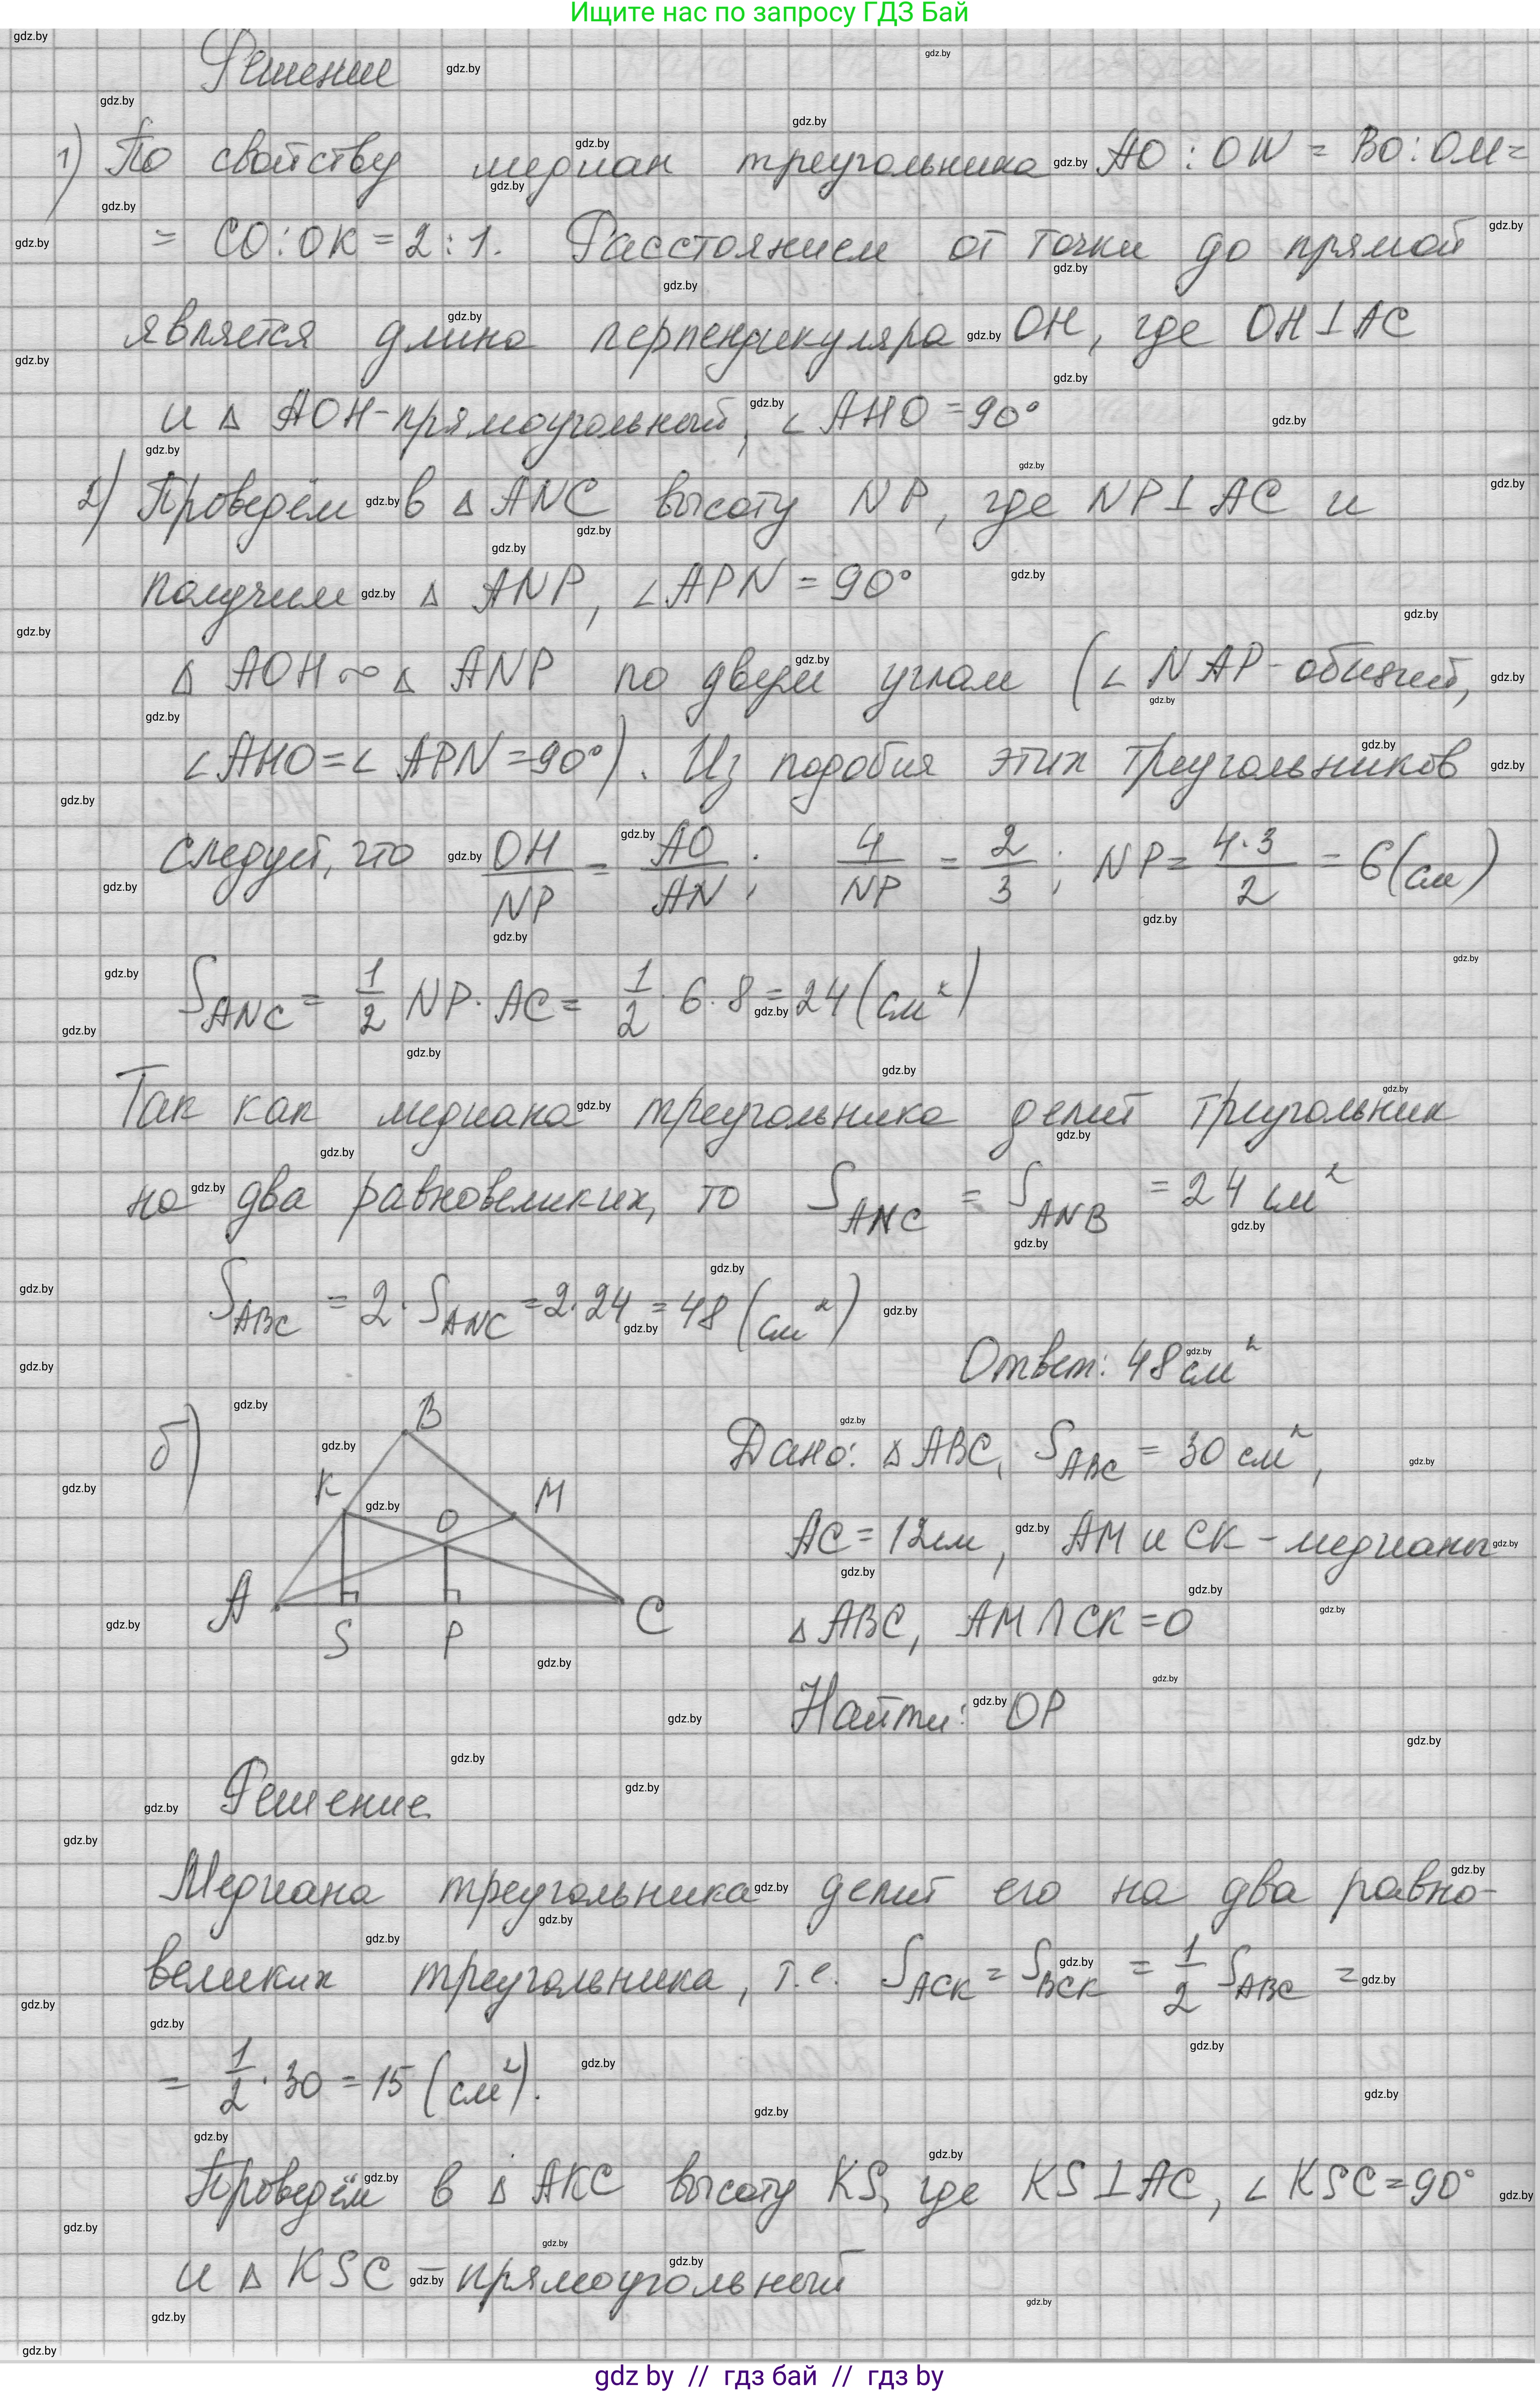 Ищите нас по запросу ГДЗ Бай
Решение
1) По свойству медиан треугольника AO : ON = BO : OM =
= CO : OK = 2 : 1. Расстоянием от точки до прямой
является длина перпендикуляра OH, где OH ⊥ AC
и △ AOH - прямоугольный, ∠ AHO = 90°
2) Проведём в △ ANC высоту NP, где NP ⊥ AC и
получим △ ANP, ∠ APN = 90°
△ AOH ∾ △ ANP по двум углам (∠ NAP - общий,
∠ AHO = ∠ APN = 90°). Из подобия этих треугольников
следует, что OH/NP = AO/AN ; 4/NP = 2/3 ; NP = 4·3/2 = 6 (см)
S ANC = 1/2 NP · AC = 1/2 · 6 · 8 = 24 (см²)
Так как медиана треугольника делит треугольник
на два равновеликих, то S ANC = S ANB = 24 см²
S ABC = 2 · S ANC = 2 · 24 = 48 (см²)
Ответ: 48 см²
б)
B
K
M
O
A
S
P
C
Дано: △ ABC, S ABC = 30 см²,
AC = 12см, AM и CK - медианы
△ ABC, AM ∩ CK = O
Найти: OP
Решение
Медиана треугольника делит его на два равно-
великих треугольника, т.е. S ACK = S BCK = 1/2 S ABC =
= 1/2 · 30 = 15 (см²).
Проведём в △ AKC высоту KS, где KS ⊥ AC, ∠ KSC = 90°
и △ KSC - прямоугольный
gdz by // гдз бай // гдз by